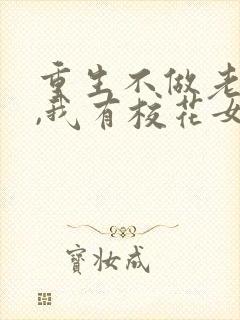 重生不做老
,我有校花女
寶妝成